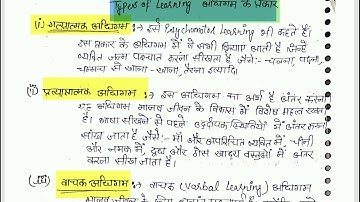 Types of Learning अधिगम के प्रकार
(i) गत्यात्मक अधिगम :→ इसे Psychomotor Learning भी कहते हैं।
इस प्रकार के अधिगम में वे सभी क्रियाएं आती हैं जिन्हें
व्यक्ति जन्म पश्चात करना सीखता है जैसे:- चलना, पढ़ना,
चम्मच से खाना-खाना, तैरना इत्यादि
(ii) प्रत्यात्मक अधिगम :→ इस अधिगम का अर्थ है अंतर करना
यह अधिगम मानव जीवन के विकास में विशेष महत्व रखता
है। भाषा सीखने से पहले उद्दीपक में अंतर करना
सीख जाता है जैसे:- माँ और अपरिचित व्यक्ति में, चीनी
और नमक में, दूध और ठोस खाद्य वस्तुओं में अंतर
करना सीख जाता है।
(iii) वाचक अधिगम :→ वाचक (Verbal Learning) अधिगम
मानव जीवन के लिए